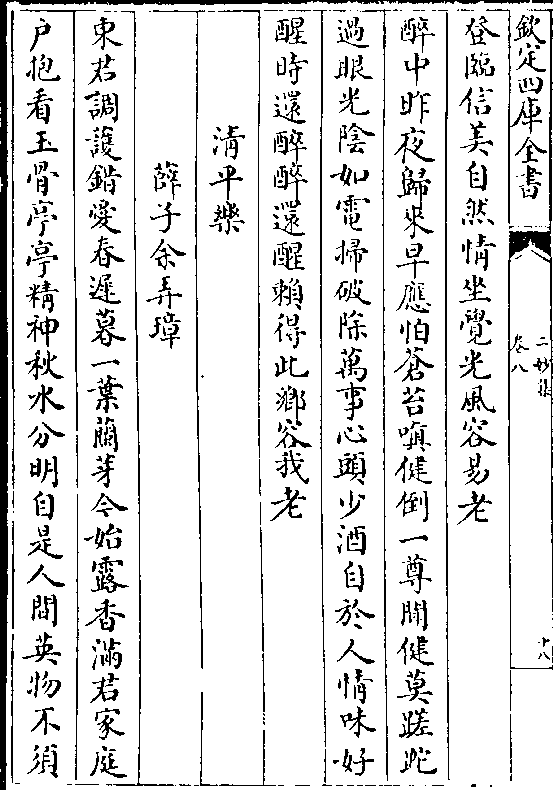 欽定四庫全書
二妙集
卷八
十八
登臨信美自然情坐覺光風容易老
醉中昨夜歸來早應怕蒼苔嗔健倒一尊閒健莫蹉跎
過眼光陰如電掃破除萬事心頭少酒自於人情味好
醒時還醉醉還醒賴得此鄉容我老
清平樂
薛子余弄璋
東君調護錯愛春遲暮一葉蘭芽今始露香滿君家庭
户抱看玉骨亭亭精神秋水分明自是人間英物不須